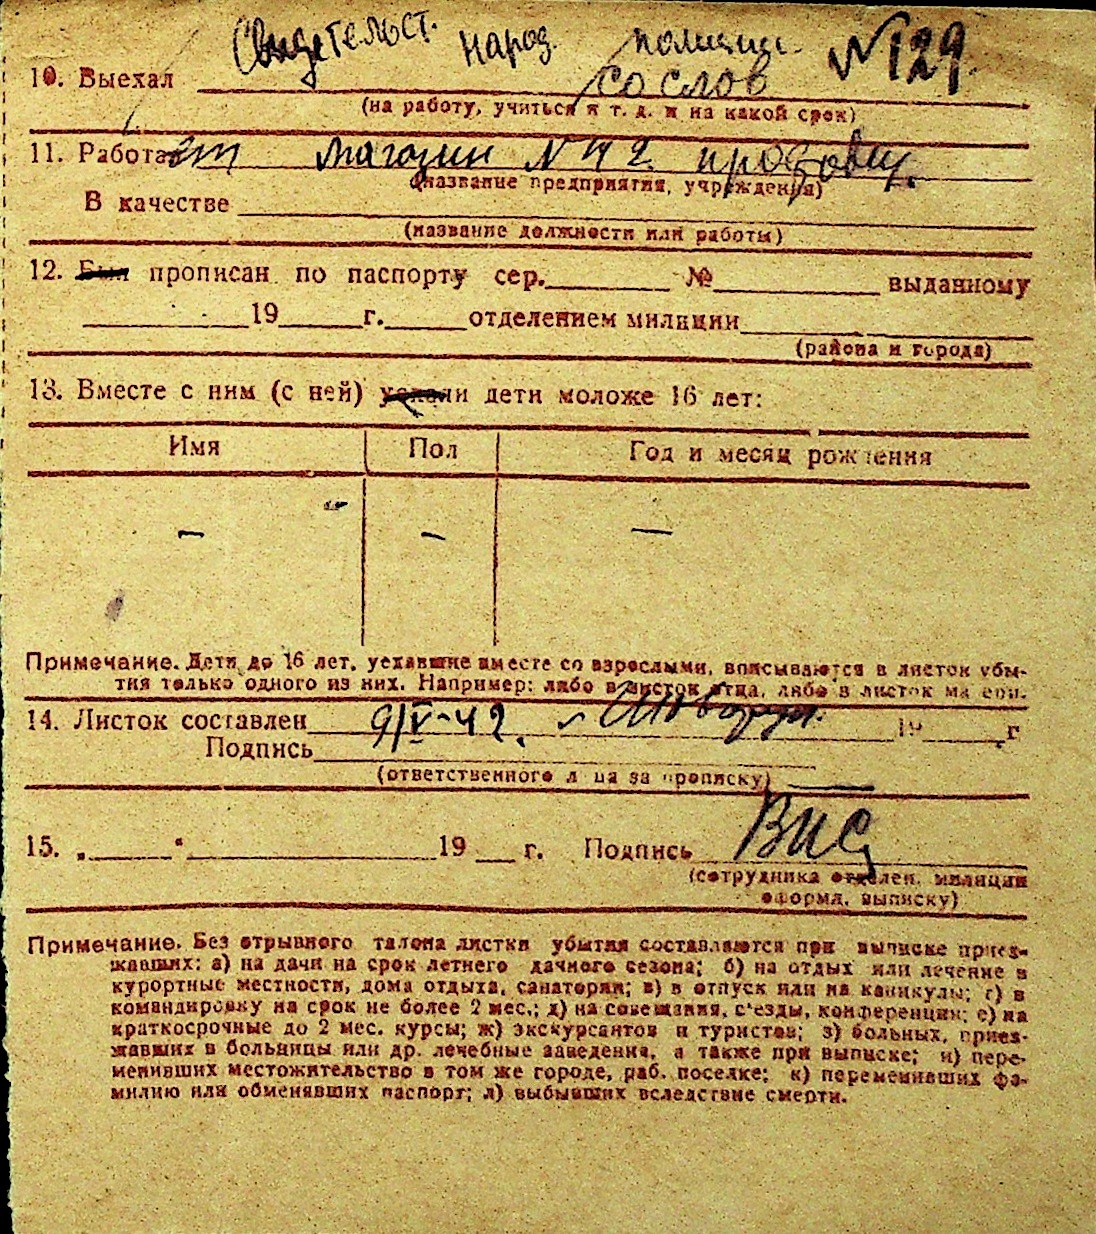 Свидетельст. народ. полиции № 129
10. Выехал со слов
(на работу, учиться и т. д. и на какой срок)
11. Работает магазин № 42 продавец.
(название предприятия, учреждения)
В качестве
(название должности или работы)
12. Был прописан по паспорту сер. № выданному
19 г. отделением милиции
(района и города)
13. Вместе с ним (с ней) уехали дети моложе 16 лет:
Имя Пол Год и месяц рождения
— — —
Примечание. Дети до 16 лет, уехавшие вместе со взрослыми, вписываются в листок убы-
тия только одного из них. Например: либо в листок отца, либо в листок матери.
14. Листок составлен 9/V-42. 19 г
Подпись
(ответственного лица за прописку)
15. „ “ 19 г. Подпись
(сотрудника отделен. милиции
оформл. выписку)
Примечание. Без отрывного талона листки убытия составляются при выписке приез-
жавших: а) на дачи на срок летнего дачного сезона; б) на отдых или лечение в
курортные местности, дома отдыха, санатории; в) в отпуск или на каникулы; г) в
командировку на срок не более 2 мес.; д) на совещания, с'езды, конференции; е) на
краткосрочные до 2 мес. курсы; ж) экскурсантов и туристов; з) больных, приез-
жавших в больницы или др. лечебные заведения, а также при выписке; и) пере-
менивших местожительство в том же городе, раб. поселке; к) переменивших фа-
милию или обменявших паспорт; л) выбывших вследствие смерти.